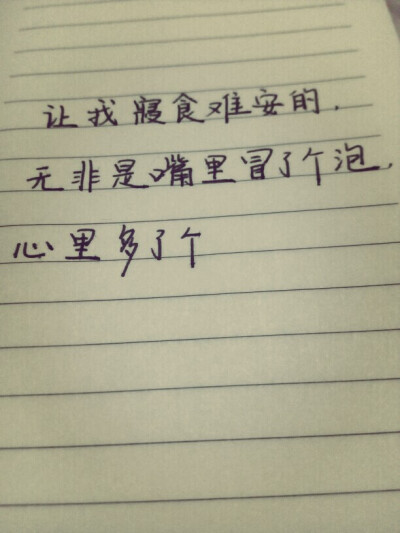 让我寝食难安的,
无非是嘴里冒了个泡,
心里多了个